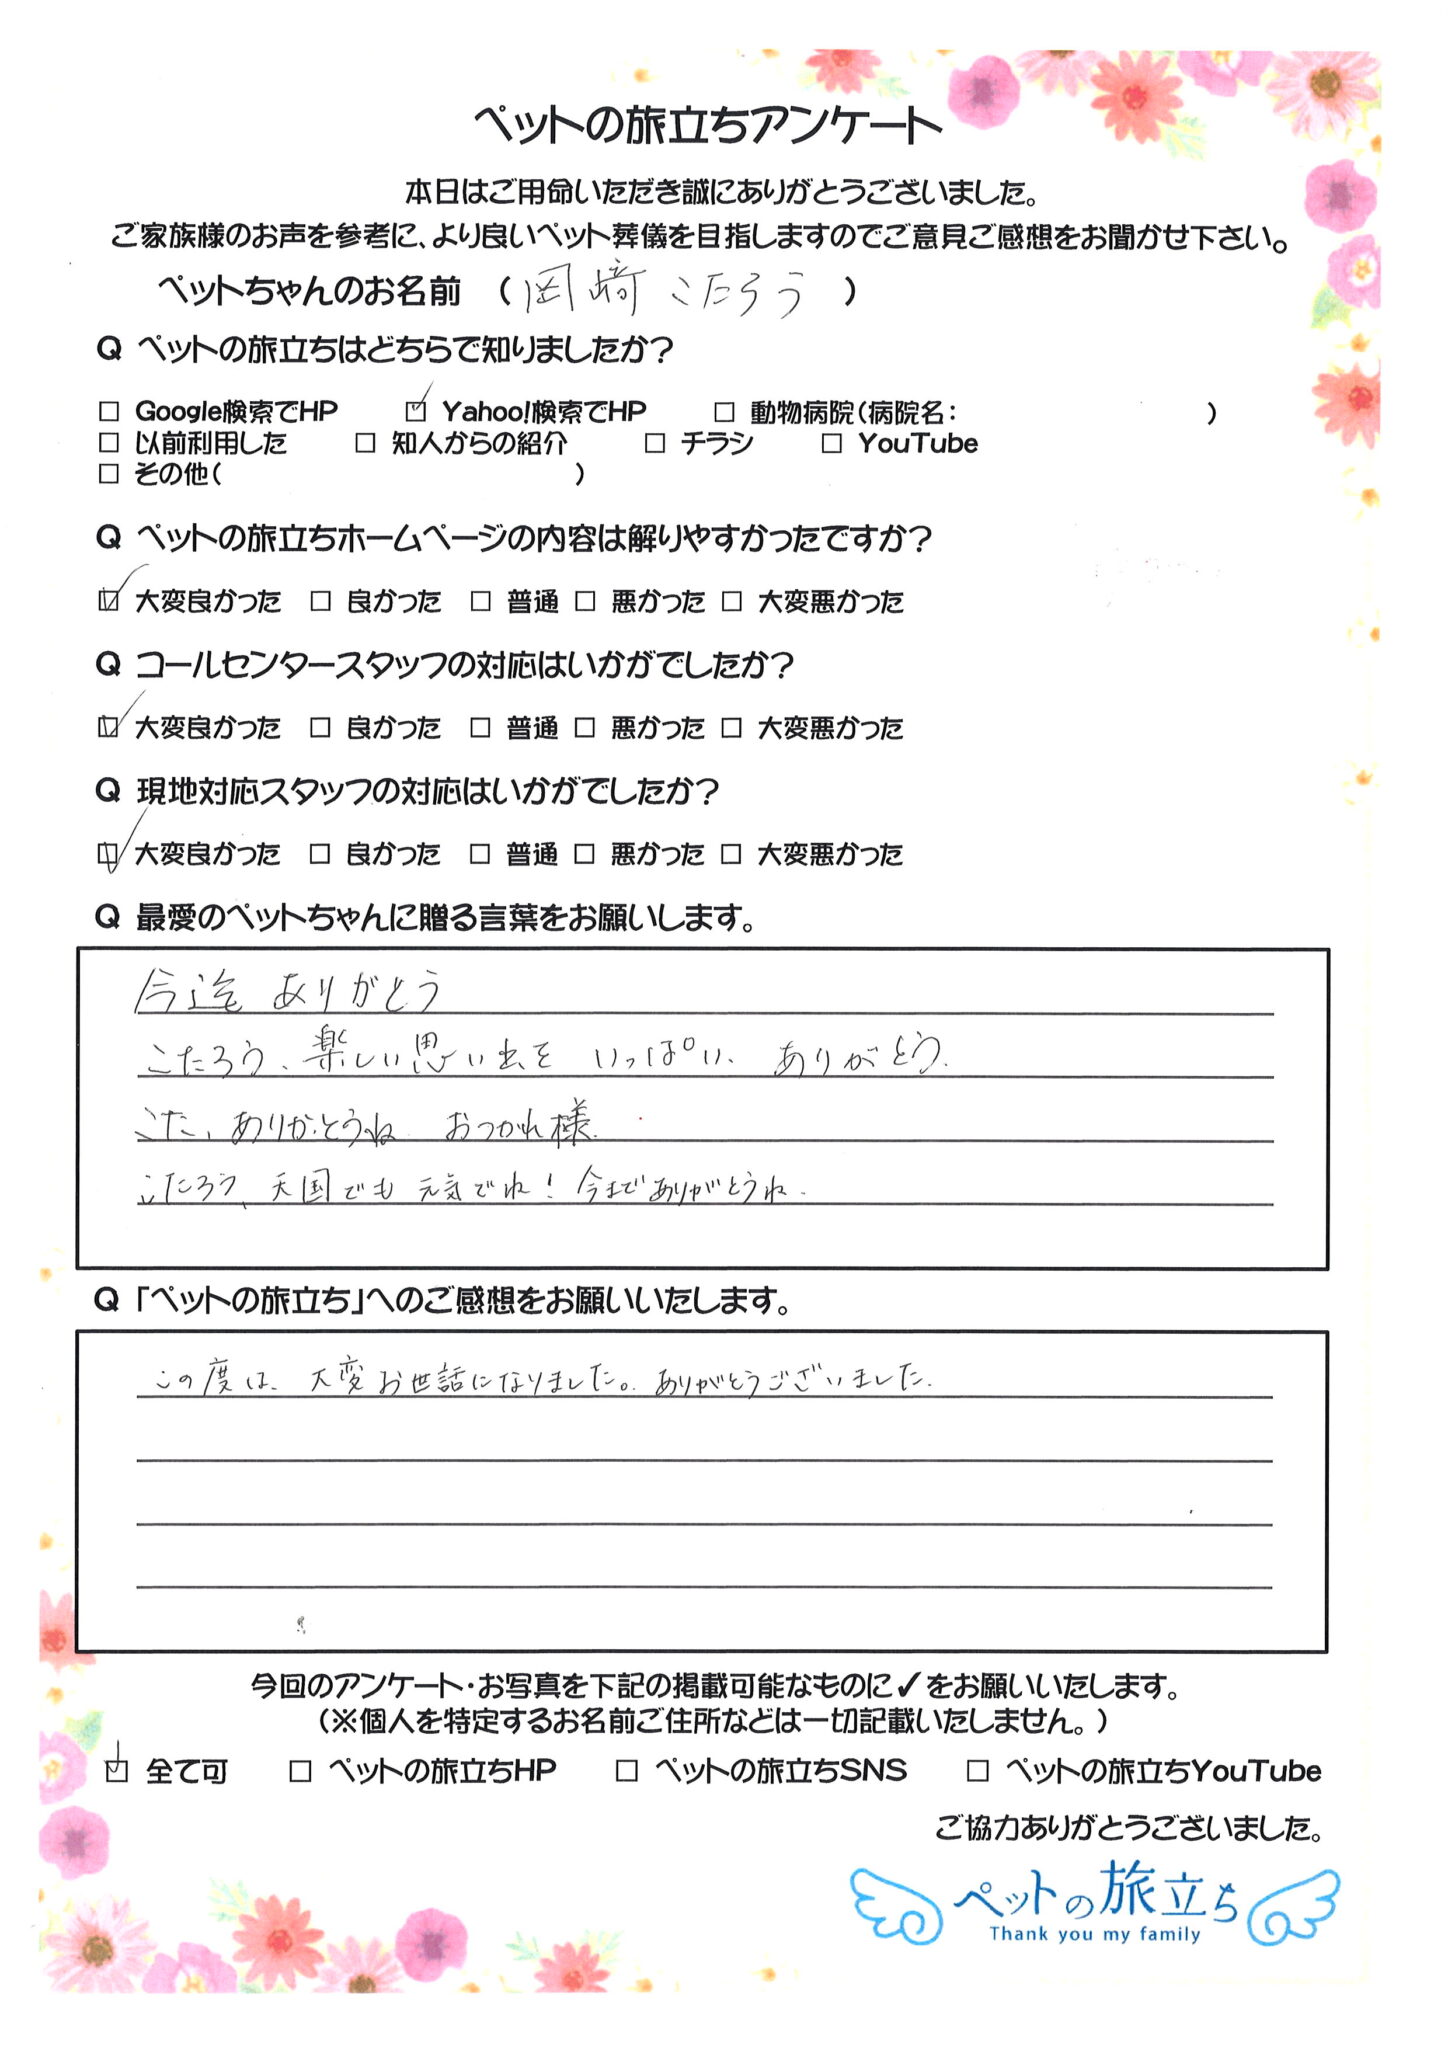 ペットの旅立ちアンケート
本日はご用命いただき誠にありがとうございました。
ご家族様のお声を参考に、より良いペット葬儀を目指しますのでご意見ご感想をお聞かせ下さい。
ペットちゃんのお名前 （岡崎 こたろう）
Q ペットの旅立ちはどちらで知りましたか？
□ Google検索でHP ☑ Yahoo!検索でHP □ 動物病院（病院名： ）
□ 以前利用した □ 知人からの紹介 □ チラシ □ YouTube
□ その他（ ）
Q ペットの旅立ちホームページの内容は解りやすかったですか？
☑ 大変良かった □ 良かった □ 普通 □ 悪かった □ 大変悪かった
Q コールセンタースタッフの対応はいかがでしたか？
☑ 大変良かった □ 良かった □ 普通 □ 悪かった □ 大変悪かった
Q 現地対応スタッフの対応はいかがでしたか？
☑ 大変良かった □ 良かった □ 普通 □ 悪かった □ 大変悪かった
Q 最愛のペットちゃんに贈る言葉をお願いします。
今迄 ありがとう
こたろう、楽しい思い出を いっぱい、ありがとう。
こた、ありがとうね おつかれ様。
こたろう、天国でも元気でね！今までありがとうね。
Q 「ペットの旅立ち」へのご感想をお願いいたします。
この度は、大変お世話になりました。ありがとうございました。
今回のアンケート・お写真を下記の掲載可能なものに✓をお願いいたします。
（※個人を特定するお名前ご住所などは一切記載いたしません。）
☑ 全て可 □ ペットの旅立ちHP □ ペットの旅立ちSNS □ ペットの旅立ちYouTube
ご協力ありがとうございました。
ペットの旅立ち
Thank you my family